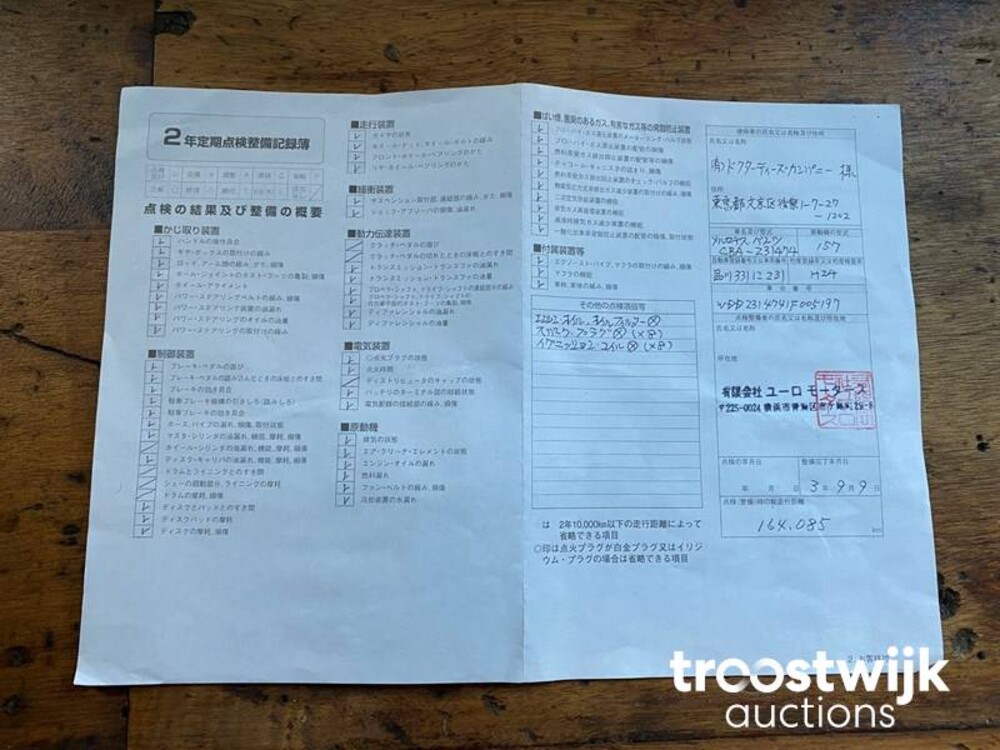 2年定期点検整備記録簿
点検の結果及び整備の概要
■かじ取り装置
ハンドルの操作具合
ギヤ・ボックスの取付けの緩み
ロッド、アーム類の緩み、がた、損傷
ボール・ジョイントのダスト・ブーツの亀裂、損傷
ホイール・アライメント
パワー・ステアリングベルトの緩み、損傷
パワー・ステアリング装置の油漏れ
パワー・ステアリングのオイルの油量
パワー・ステアリングの取付けの緩み
■制御装置
ブレーキ・ペダルの遊び
ブレーキ・ペダルの踏み込んだときの床板とのすき間
ブレーキの効き具合
駐車ブレーキ機構の引きしろ(踏みしろ)
駐車ブレーキの効き具合
ホース、パイプの漏れ、損傷、取付状態
マスタ・シリンダの油漏れ、機能、摩耗、損傷
ホイール・シリンダの油漏れ、機能、摩耗、損傷
ディスク・キャリパの油漏れ、機能、摩耗、損傷
ドラムとライニングとのすき間
シューの摺動部分、ライニングの摩耗
ドラムの摩耗、損傷
ディスクとパッドとのすき間
ディスクパッドの摩耗
ディスクの摩耗、損傷
■走行装置
タイヤの状態
ホイール・ナット、ホイール・ボルトの緩み
フロント・ホイール・ベアリングのがた
リヤ・ホイール・ベアリングのがた
■緩衝装置
サスペンション取付部、連結部の緩み、がた、損傷
ショック・アブソーバの損傷、油漏れ
■動力伝達装置
クラッチ・ペダルの遊び
クラッチ・ペダルの切れたときの床板とのすき間
トランスミッション・トランスファの油漏れ
トランスミッション・トランスファの油量
プロペラ・シャフト、ドライブ・シャフトの連結部の緩み
ディファレンシャルの油漏れ
ディファレンシャルの油量
■電気装置
○点火プラグの状態
点火時期
ディストリビュータのキャップの状態
バッテリのターミナル部の接続状態
電気配線の接続部の緩み、損傷
■原動機
排気の状態
エア・クリーナ・エレメントの状態
エンジン・オイルの漏れ
燃料漏れ
ファン・ベルトの緩み、損傷
冷却装置の水漏れ
■ばい煙、悪臭のあるガス、有害なガス等の発散防止装置
ブローバイ・ガス還元装置のメターリング・バルブ状態
ブローバイ・ガス還元装置の配管の損傷
燃料蒸発ガス排出抑止装置の配管等の損傷
チャコール・キャニスタの詰まり、損傷
燃料蒸発ガス排出抑止装置のチェック・バルブの機能
二次空気供給装置の機能
排気ガス再循環装置の機能
減速時排気ガス減少装置の機能
一酸化炭素等発散防止装置の配管の損傷、取付状態
■付属装置等
エグゾースト・パイプ、マフラの取付けの緩み、損傷
マフラの機能
車枠、車体の緩み、損傷
その他の点検項目等
エンジン・オイル、オイルフィルター ⊗
スパーク・プラグ ⊗ (×8)
イグニッション・コイル ⊗ (×8)
は 2年10,000km以下の走行距離によって
省略できる項目
○印は点火プラグが白金プラグ又はイリジ
ウム・プラグの場合は省略できる項目
使用者の氏名又は名称及び住所
氏名又は名称
(有)ドクターディーズ・カンパニー 様
住所
東京都文京区後楽1-7-27
-1202
車名及び型式
原動機の型式
メルセデス ベンツ
CBA-231474
157
品川331 に 231
H24
車台番号
WDD2314741F005197
点検整備者の氏名又は名称及び所在地
氏名又は名称
所在地
有限会社 ユーロ モータース
〒225-0024
点検の年月日
整備完了年月日
年 月 日
3年9月9日
点検(整備)時の総走行距離
164,085 km
troostwijk
auctions